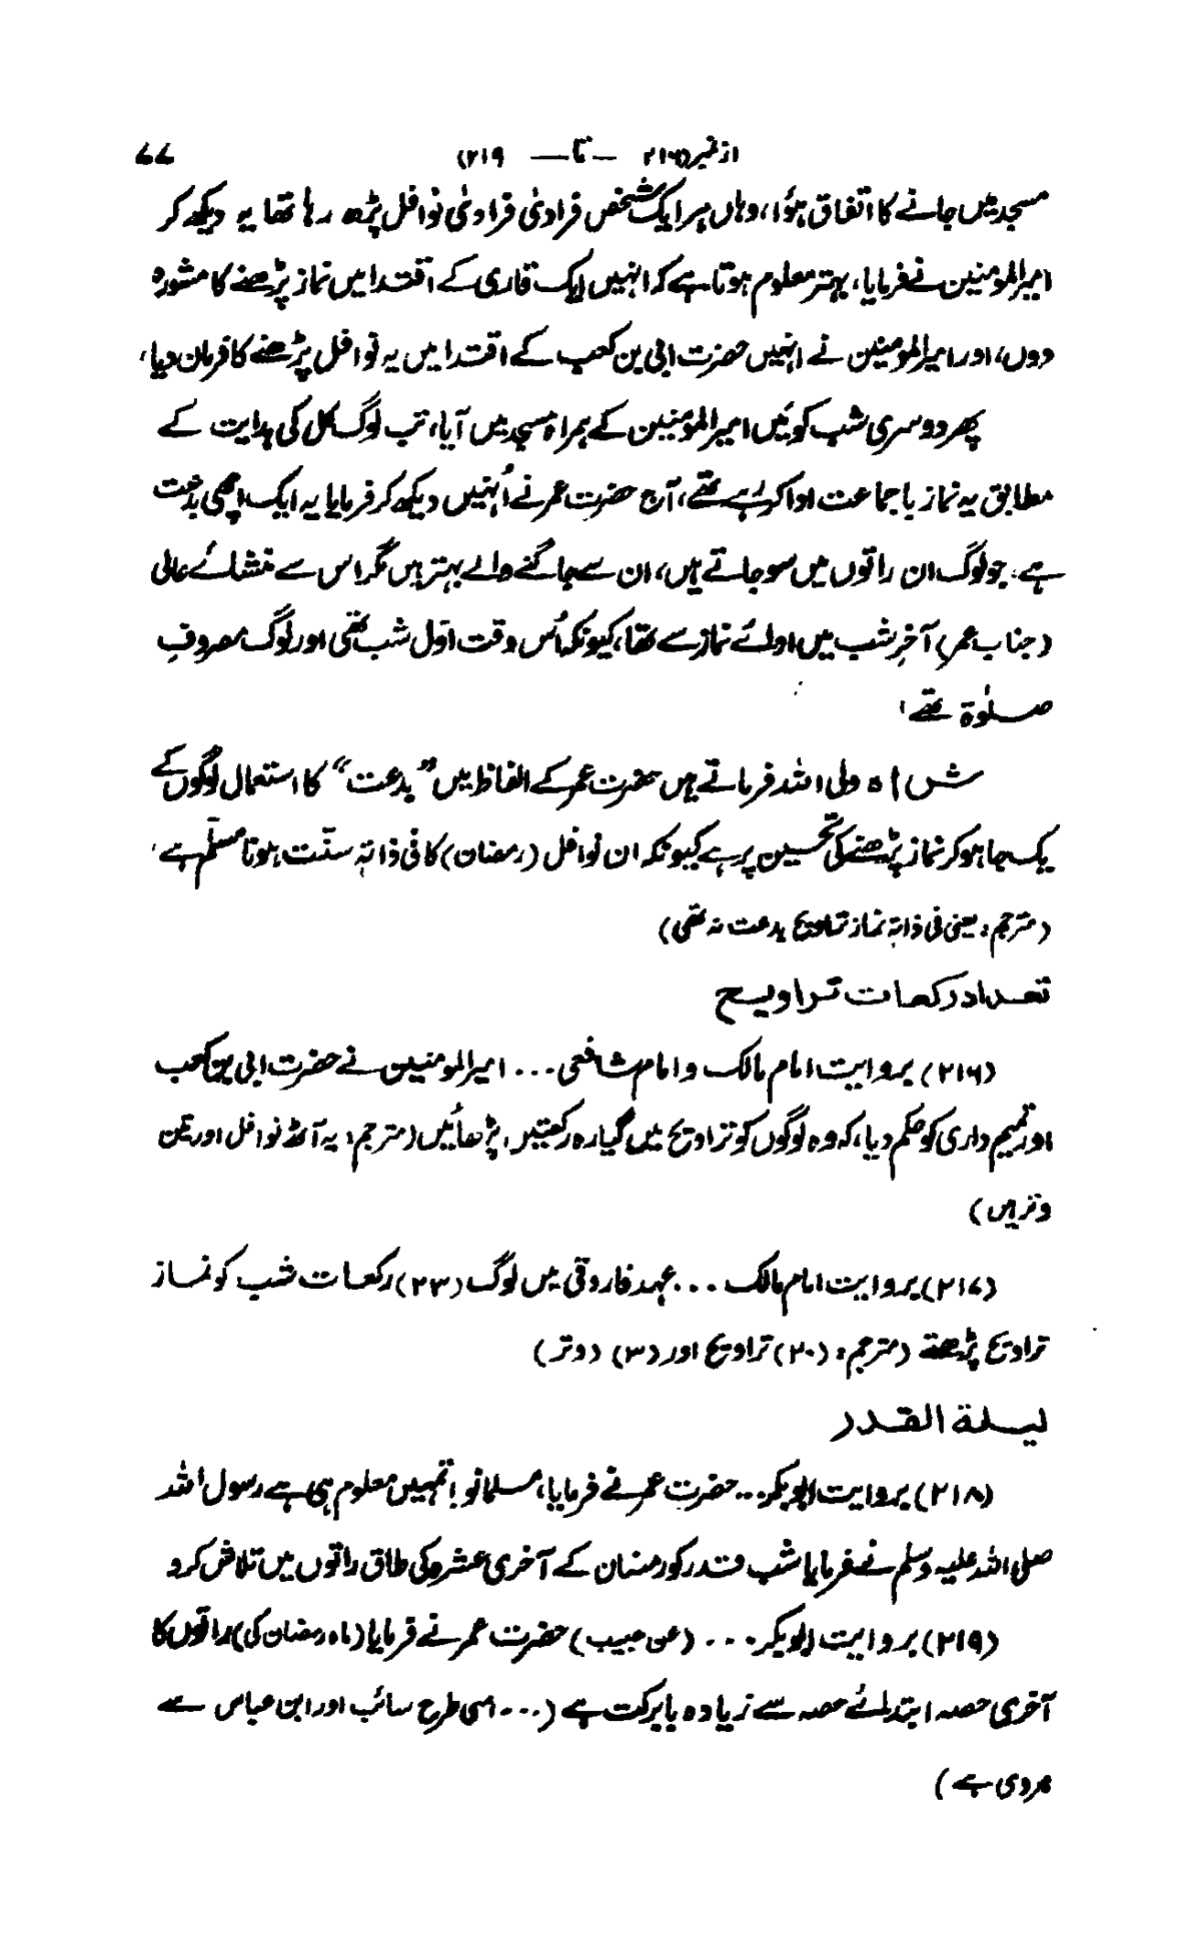 از نمبر (۲۱۶ — تا — ۲۱۹) ۷۷
مسجد میں جانے کا اتفاق ہؤا، وہاں ہر ایک شخص فرادیٰ فرادیٰ نوافل پڑھ رہا تھا یہ دیکھ کر
امیرالمومنین نے فرمایا، بہتر معلوم ہوتا ہے کہ انہیں ایک قاری کے اقتدا میں نماز پڑھنے کا مشورہ
دوں، اور امیرالمومنین نے انہیں حضرت ابی بن کعب کے اقتدا میں یہ نوافل پڑھنے کا فرمان دیا،
پھر دوسری شب کو مَیں امیرالمؤمنین کے ہمراہ مسجد میں آیا، تب لوگ کل کی ہدایت کے
مطابق یہ نماز باجماعت ادا کر رہے تھے، آج حضرت عمر نے اُنہیں دیکھ کر فرمایا یہ ایک اچھی بدعت
ہے۔ جو لوگ ان راتوں میں سو جاتے ہیں، ان سے جاگنے والے بہتر ہیں مگر اس سے منشائے عالی
(جناب عمر) آخرِ شب میں ادائے نماز سے تھا، کیونکہ اُس وقت اوّل شب تھی اور لوگ مصروفِ
صلوٰۃ تھے،
شاہ ولی اللہ فرماتے ہیں حضرت عمر کے الفاظ میں ”بدعت“ کا استعمال لوگوں کے
یک جا ہو کر نماز پڑھنے کی تحسین پر ہے کیونکہ ان نوافل (رمضان) کا فی ذاتہٖ سنّت ہونا مسلّم ہے،
(مترجم: یعنی فی ذاتہٖ نماز تراویح بدعت نہ تھی)
تعداد رکعات تراویح
(۲۱۶) بروایت امام مالک و امام شافعی ... امیرالمومنین نے حضرت ابی بن کعب
اور تمیم داری کو حکم دیا، کہ وہ لوگوں کو تراویح میں گیارہ رکعتیں پڑھائیں (مترجم: یہ آٹھ نوافل اور تین
وتر ہیں)
(۲۱۷) بروایت امام مالک ... عہد فاروقی میں لوگ (۲۳) رکعات شب کو نماز
تراویح پڑھتے (مترجم: (۲۰) تراویح اور (۳) (وتر)
لیلۃ القدر
(۲۱۸) بروایت ابوبکر... حضرت عمر نے فرمایا، مسلمانو! تمہیں معلوم ہی ہے رسول اللہ
صلی اللہ علیہ وسلم نے فرمایا شب قدر کو رمضان کے آخری عشرہ کی طاق راتوں میں تلاش کرو
(۲۱۹) بروایت ابوبکر ... (عن حبیب) حضرت عمر نے فرمایا (ماہ رمضان کی) راتوں کا
آخری حصہ ابتدائے حصہ سے زیادہ بابرکت ہے (... اسی طرح سائب اور ابن عباس سے
مروی ہے)